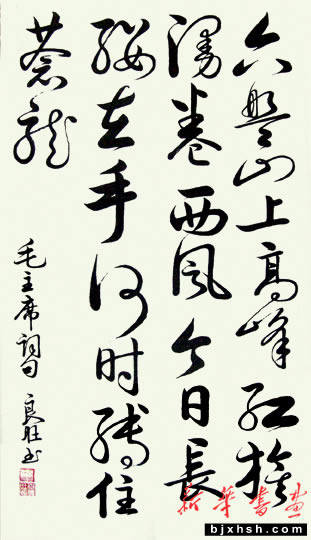 六盤山上高峰红旗
漫卷西风今日長
缨在手何时缚住
蒼龙
毛主席词句 良旺书
華書画
bjxhsh.com